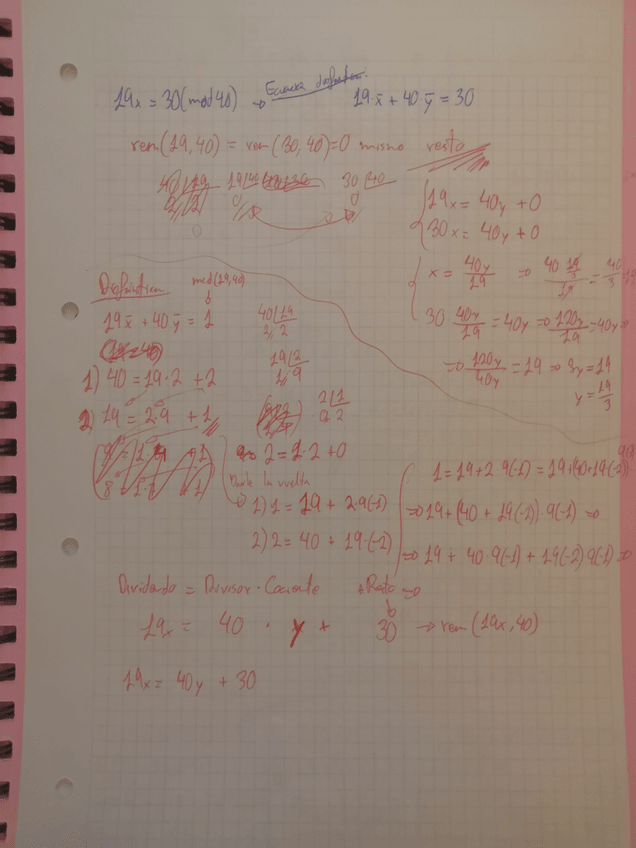 19x = 30(mod 40) → Ecuacion diofantica. 19·x̄ + 40·ȳ = 30
rem(19,40) = rem(30,40)=0 mismo resto
30 |40
0
19x = 40y + 0
30x = 40y + 0
x = 40y/19 ⇒
30 40y/19 = 40y ⇒ 120y/19 = 40y ⇒
⇒ 120y/40y = 19 ⇒ 3y = 19
y = 19/3
Diofantica
mcd(19,40)
19x̄ + 40ȳ = 1
40 |19
2 2
19 |2
1 9
2 |1
0 2
1) 40 = 19·2 + 2
2) 19 = 2·9 + 1
2 = 1·2 + 0
Darle la vuelta
1) 1 = 19 + 2·9(-1)
2) 2 = 40 + 19·(-2)
1 = 19 + 2·9(-1) = 19 + (40 + 19(-2))
⇒ 19 + (40 + 19(-2))·9(-1) ⇒
⇒ 19 + 40·9(-1) + 19(-2)·9(-1) ⇒
Dividendo = Divisor · Cociente + Resto ⇒
19x = 40 · y + 30 → rem(19x, 40)
19x = 40y + 30